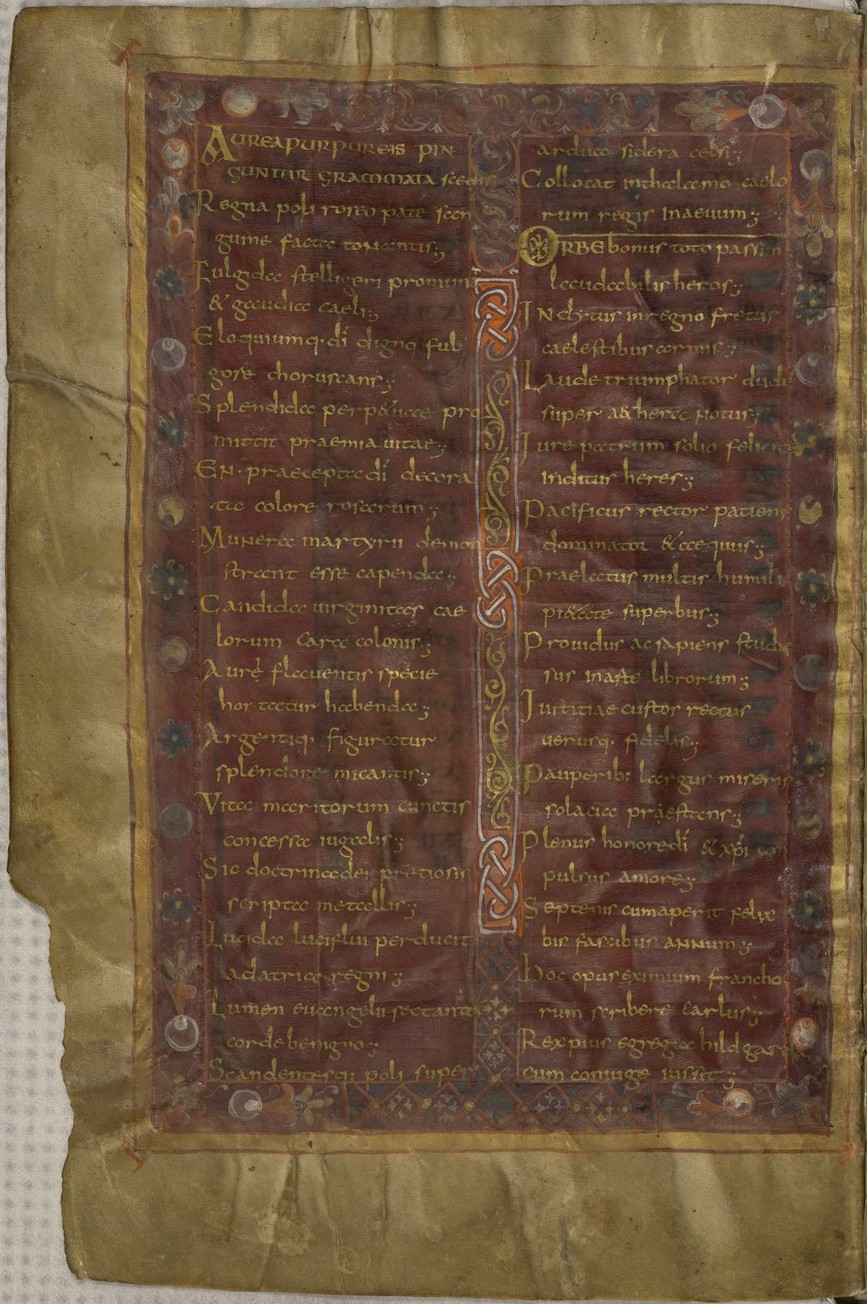 AUREA PURPUREIS PIN
GUNTUR GRAMMATA scedis
Regna poli roseo pate san
guine facta tonantis;
Fulgida stelligeri promunt
& gaudia caeli;
Eloquiumq· dī digno ful
gore choruscans;
Splendida perp&uae pro
mittit praemia vitae;
En· praecepta dī decora
ta colore rosarum;
Munera martyrii demon
strant esse capenda;
Candida virginitas cae
lorum cara colonis;
Aurę flaventis specie
hortatur habenda;
Argentiq· figuratur
splendore micantis;
Vita maritorum cunctis
concessa iugalis;
Sic doctrina dei pretiosis
scripta metallis;
Lucida luciflui perducit
ad atria regni;
Lumen evangelii sectantes
corde benigno;
Scandentesq· poli super
ardua sidera celsi;
Collocat in thalamo caelo
rum regis in aevum;
ORBE bonus toto passim
laudabilis heros;
Inclytus in regno fretus
caelestibus armis;
Laude triumphator dudū
super a&hera notus;
Iure patrum solio feliciter
inditus heres;
Pacificus rector patiens
dominator & aequus;
Praelatus multis humili
pi&ate superbus;
Providus ac sapiens studio
sus in arte librorum;
Iustitiae custos rectus
verusq· fidelis;
Pauperib; largus miseris
solacia praestans;
Plenus honore dī & xp̄i con
pulsus amore;
Septenis cum aperit felix
bis fascibus annum;
hoc opus eximium francho
rum scribere carlus;
Rex pius egregia hildgarda
cum coniuge iussit;